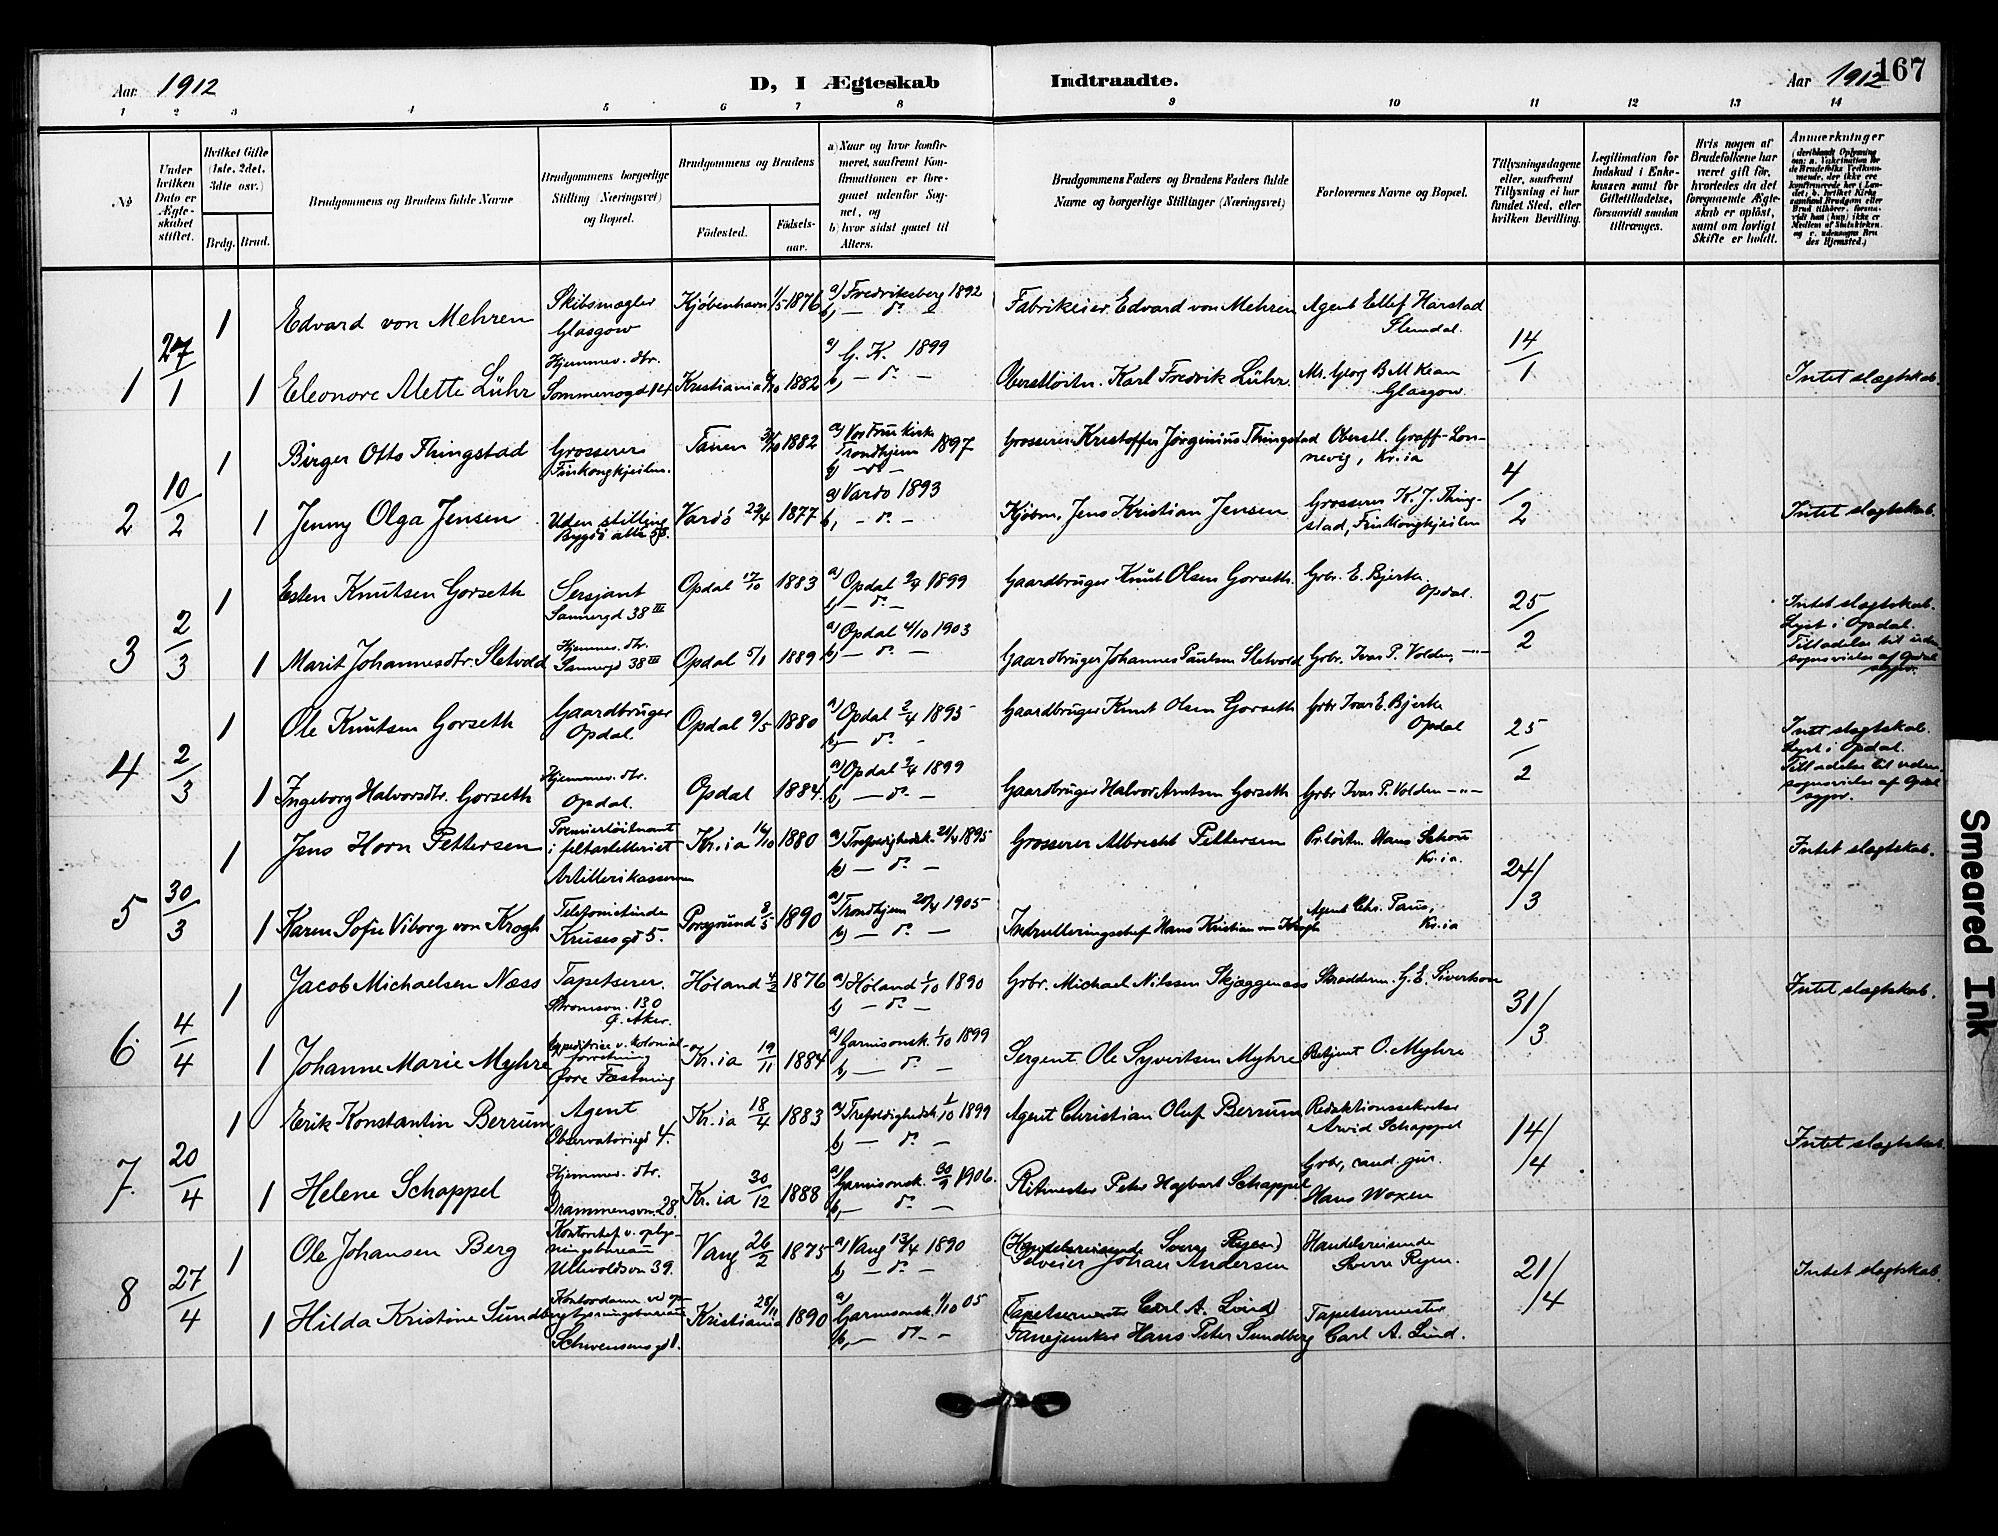 Aar 1912
D, I Ægteskab Indtraadte.
Aar 1912
167
1 2 3 4 5 6 7 8 9 10 11 12 13 14
No
Under hvilken Dato er Ægteskabet stiftet.
Hvilket Gifte (1ste, 2det, 3die osv.)
Brdg. Brud.
Brudgommens og Brudens fulde Navne
Brudgommens borgerlige Stilling (Næringsvei) og Bopæl.
Brudgommens og Brudens
Fødested.
Fødselsaar.
a) Naar og hvor konfirmeret, saafremt Konfirmationen er foregaaet udenfor Sognet, og
b) hvor sidst gaaet til Alters.
Brudgommens Faders og Brudens Faders fulde Navne og borgerlige Stillinger (Næringsvei)
Forlovernes Navne og Bopæl.
Tillysningsdagene eller, saafremt Tillysning ei har fundet Sted, efter hvilken Bevilling.
Legitimation for Indskud i Enkekassen samt for Giftetilladelse, forsaavidt saadan tiltrænges.
Hvis nogen af Brudefolkene har været gift før, hvorledes da det foregaaende Ægteskab er opløst, samt om lovligt Skifte er holdt.
Anmerkninger
1 27/1
1 Edvard von Mehren Skibsmægler Glasgow Kjöbenhavn 1/5 1876 a) Fredriksberg 1892 b) — do — Fabrikeier Edvard von Mehren Agent Ellef Harstad Slemdal. 14/1
1 Eleonore Mette Lühr Hjemmev. dtr. Sommerrogd 14 Kristiania 1882 a) G. K. 1899 b) — do — Oberstløitn. Karl Fredrik Lühr. Mr. Georg B McKean Glasgow. Intet slægtskab.
2 10/2
1 Birger Otto Thingstad Grosserer Finkongkjeilen. Tanen 1882 a) Vor Frue kirke Trondhjem 1897 b) — do — Grosserer Kristoffer Jørginius Thingstad Oberstl. Graff-Lonnevig, Kr.ia 4/2
1 Jenny Olga Jensen Uden stilling Bygdö alle 58. Vardö 22/4 1877 a) Vardo 1893 b) — do — Kjøbm. Jens Kristian Jensen Grosserer K. J. Thingstad, Finkongkjeilen Intet slægtskab.
3 2/3
1 Esten Knutsen Gorseth Sersjant Sannergd 38 III Opdal 17/10 1883 a) Opdal 2/4 1899 b) — do — Gaardbruger Knut Olsen Gorseth. Grbr. E. Bjerke. Opdal. 25/2
1 Marit Johannesdtr. Sletvold Hjemmev. dtr. Sannergd 38 III Opdal 5/1 1889 a) Opdal 4/10 1903 b) — do — Gaardbruger Johannes Paulsen Sletvold Grbr. Ivar P. Volden, —"— Intet slægtskab. Lyst i Opdal. Tilladelse til udensognsvielse af Opdal sogpr.
4 2/3
1 Ole Knutsen Gorseth Gaardbruger Opdal. Opdal 9/5 1880 a) Opdal 2/4 1895 b) — do — Gaardbruger Knut Olsen Gorseth Grbr Ivar E. Bjerke Opdal 25/2
1 Ingeborg Halvorsdtr. Gorseth Hjemmev. dtr. Opdal. Opdal 1884. a) Opdal 2/4 1899 b) — do — Gaardbruger Halvor Arntsen Gorseth Grbr Ivar P. Volden —"— Intet slægtskab. Lyst i Opdal. Tilladelse til udensognsvielse af Opdal sogpr.
5 30/3
1 Jens Horn Pettersen Premierløitnant i feltartilleriet Artillerikasernen Kr.ia 14/10 1880 a) Trefoldighedsk. 21/4 1895 b) — do — Grosserer Albrecht Pettersen Pr.løitn. Hans Schou Kr.ia. 24/3 Intet slægtskab.
1 Karen Sofie Viborg von Krogh Telefonistinde Krusesgd 5. Porsgrund 8/5 1890 a) Trondhjem 20/4 1905 b) — do — Indrulleringschef Hans Kristian von Krogh Agent Chr. Paus, Kr.ia
6 4/4
1 Jacob Michaelsen Næss Tapetserer. Strømsvn. 130 Ø. Aker. Höland 4/2 1876 a) Höland 1/10 1890 b) — do — Grbr. Michael Nilssen Skjæggenæss Skrædderm. G. E. Sivertsen 31/3 Intet slægtskab.
1 Johanne Marie Myhre Expeditrice v. kolonialforretning Øvre Fæstning Kr.ia 19/11 1884 a) Garnisonsk. 1/10 1899 b) — do — Sergent Ole Syvertsen Myhre Betjent O. Myhre
7. 20/4
1 Erik Konstantin Berrum Agent Observatoriegd 4. Kr.ia 18/4 1883 a) Trefoldighedsk. 1/10 1899 b) — do — Agent Christian Oluf Berrum Redaktionssekretær Arvid Schappel 14/4 Intet slægtskab.
1 Helene Schappel Hjemmev. dtr. Drammensvn. 28. Kr.ia 30/12 1888 a) Garnisonsk. 30/9 1906. b) — do — Ritmester Peter Hagbart Schappel Grbr, cand. jur. Hans Woxen
8 27/4
1 Ole Johansen Berg Kontorchef v. oplysningsbureau Ullevoldsvn 39. Vang 26/2 1875 a) Vang 13/4 1890 b) — do — (Handelsreisende Sverre Ryen) Selveier Johan Andersen Handelsreisende Sverre Ryen. 21/4 Intet slægtskab.
1 Hilda Kristine Sundberg Kontordame ved oplysningsbureau Schwensensgd 1. Kristiania 28/11 1890 a) Garnisonsk. 1/10 05 b) — do — (Tapetsermester Carl A. Lind) Fanejunker Hans Peter Sundberg Tapetsermester Carl A. Lind.
Smeared Ink